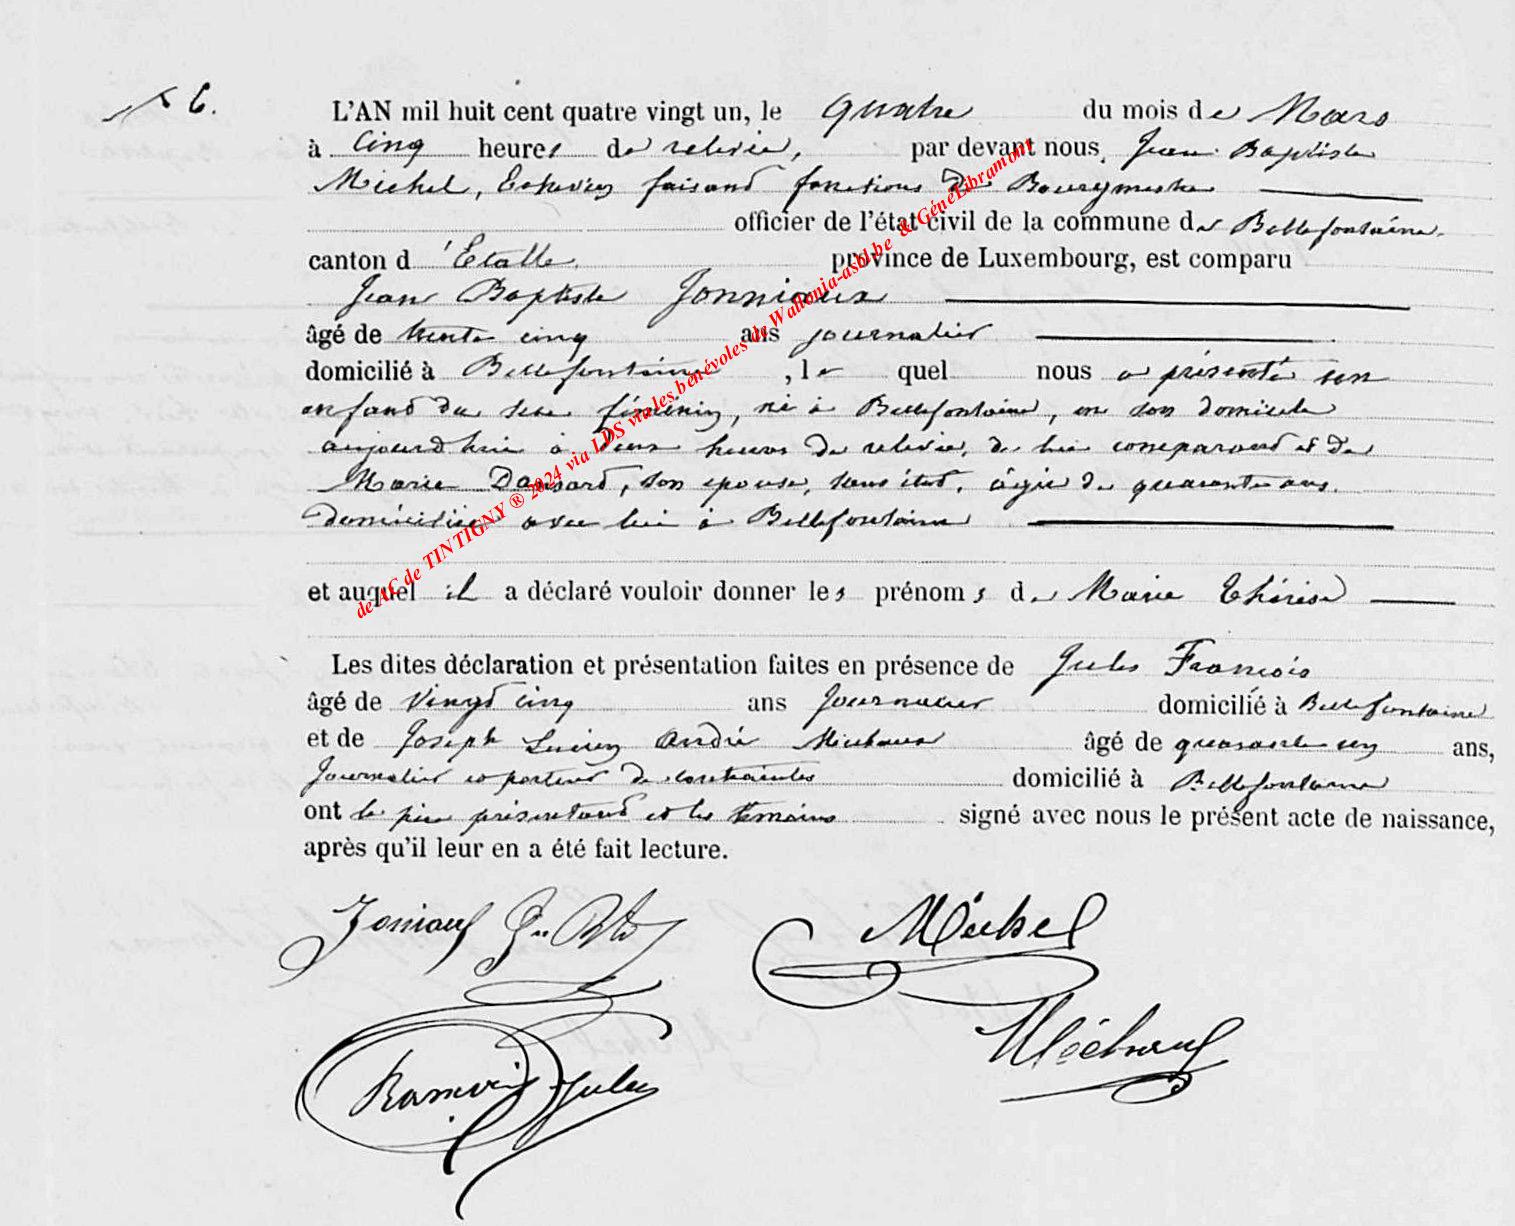 N° 6.
L'AN mil huit cent quatre vingt un, le quatre du mois de Mars
à cinq heures de relevée, par devant nous, Jean Baptiste
Michel, Echevin faisant fonctions de Bourgmestre
officier de l'état civil de la commune de Bellefontaine,
canton d'Etalle province de Luxembourg, est comparu
Jean Baptiste Jonniaux
âgé de trente cinq ans journalier
domicilié à Bellefontaine, le quel nous a présenté un
enfant du sexe féminin, né à Bellefontaine, en son domicile
aujourd'hui à deux heures de relevée, de lui comparant et de
Marie Dansard, son épouse, sans état, âgée de quarante ans,
domiciliée avec lui à Bellefontaine
et auquel il a déclaré vouloir donner les prénoms de Marie Thérèse
Les dites déclaration et présentation faites en présence de Jules François
âgé de vingt cinq ans Journalier domicilié à Bellefontaine
et de Joseph Lucien André Michaux âgé de quarante six ans,
Journalier et porteur de contraintes domicilié à Bellefontaine
ont le père présentant et les témoins signé avec nous le présent acte de naissance,
après qu'il leur en a été fait lecture.
Joniaux Jn Bte Michel
Jules
de AC de TINTIGNY ® 2024 via LDS via les bénévoles de Wallonia-asbl.be & GénéLibramont